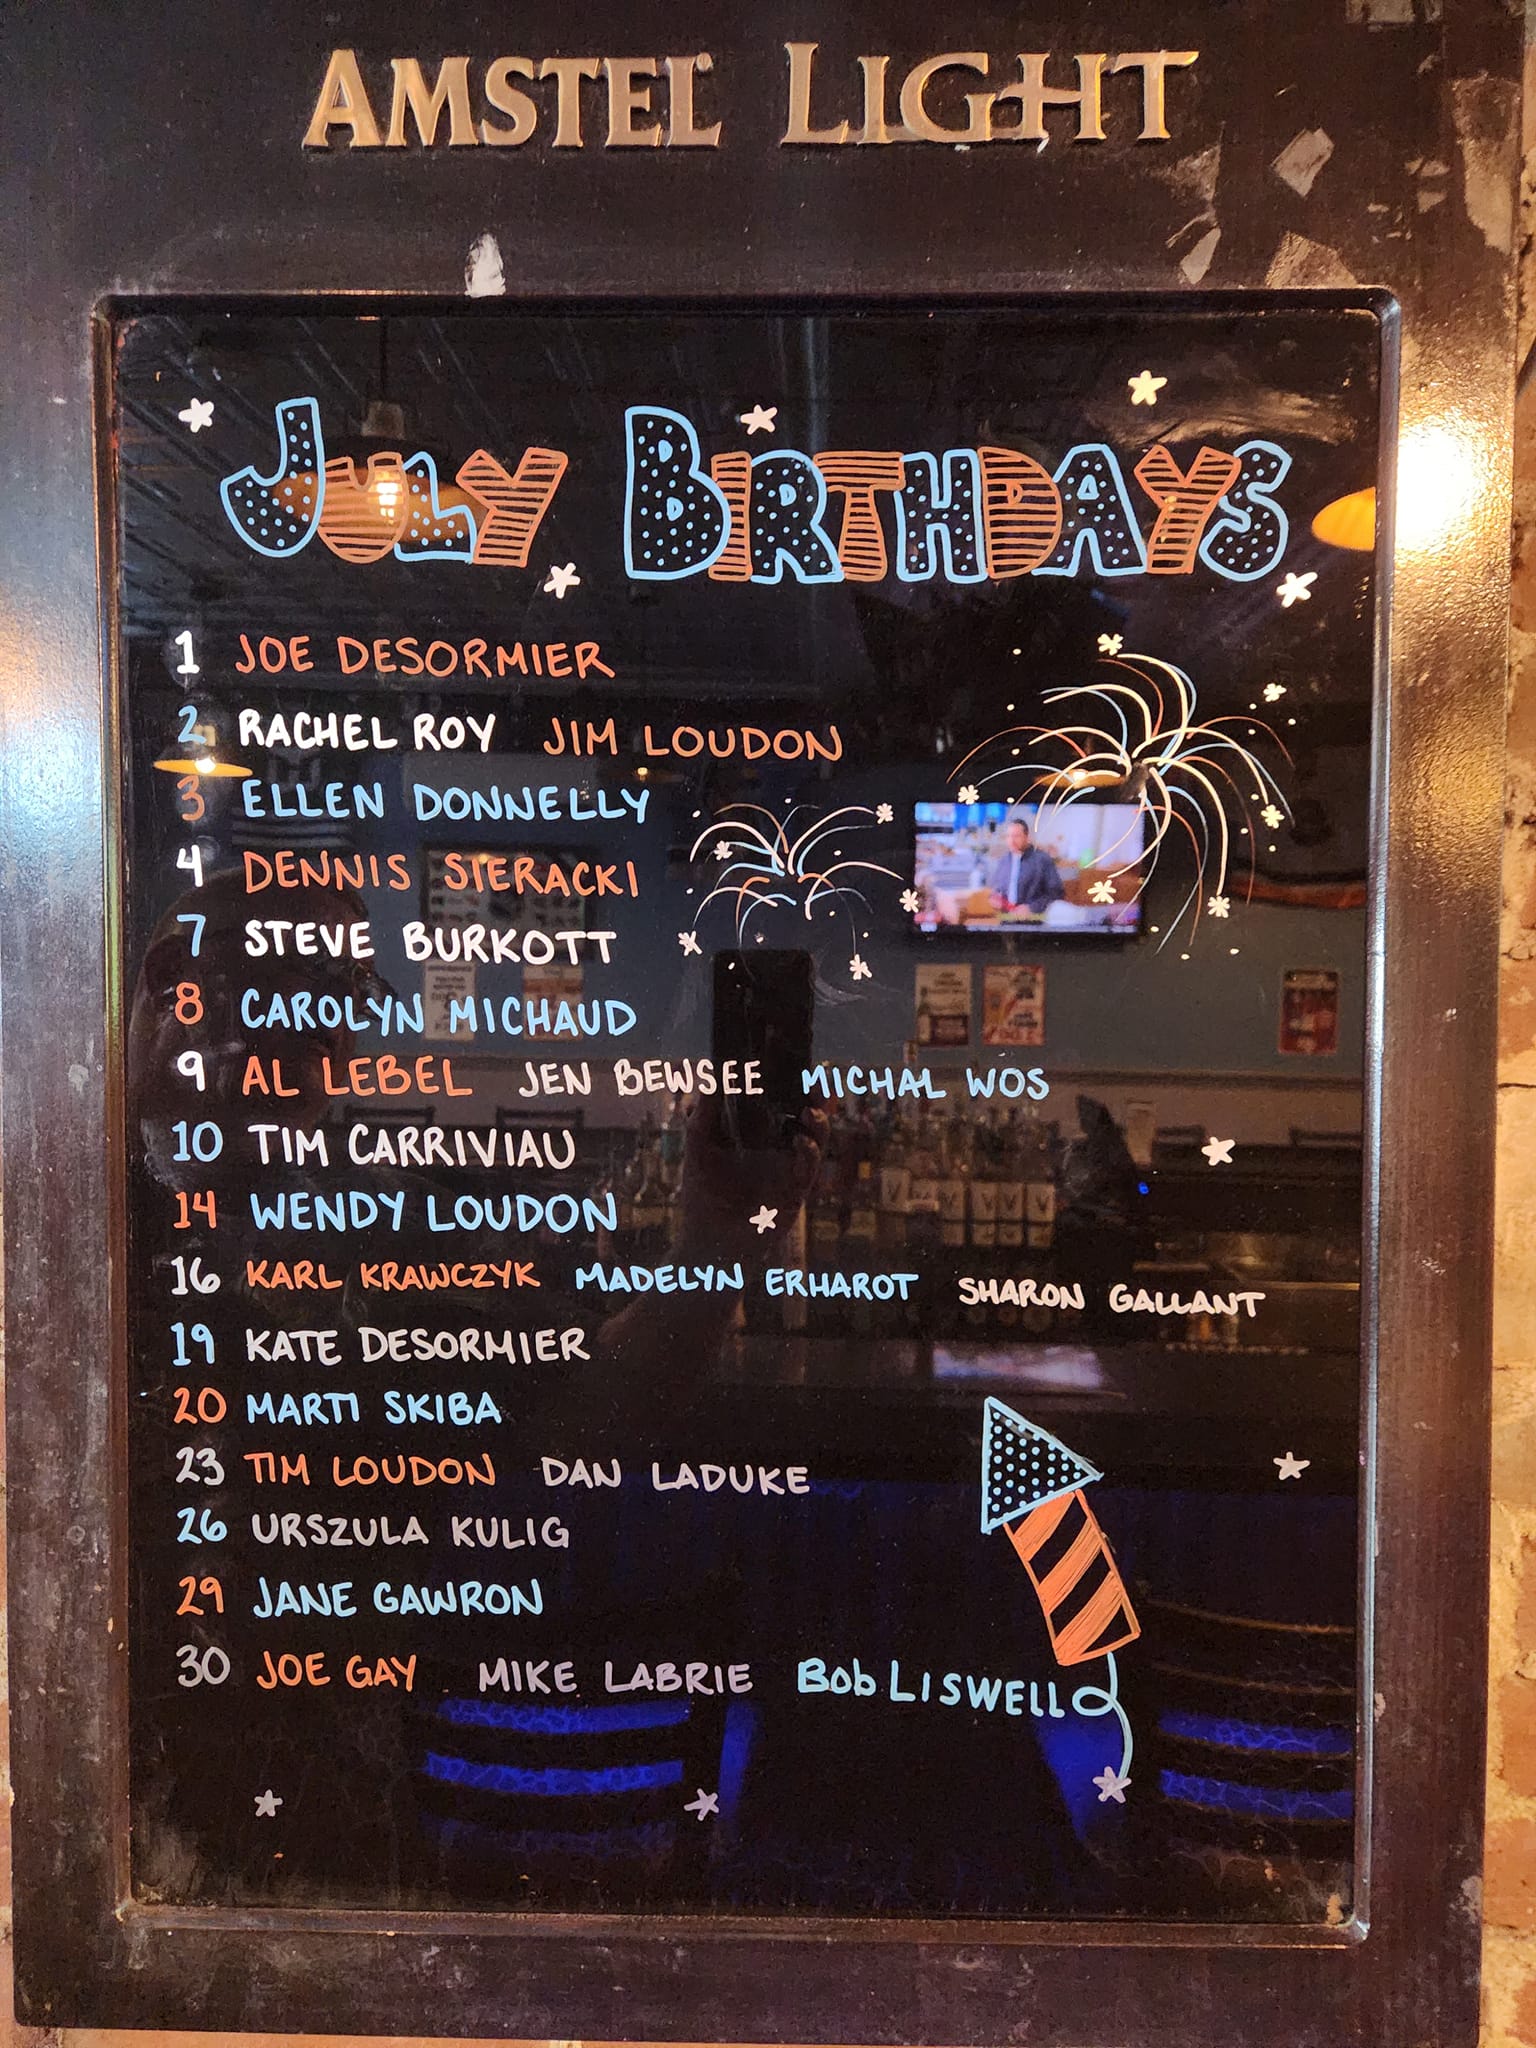 AMSTEL LIGHT
JULY BIRTHDAYS
1 JOE DESORMIER
2 RACHEL ROY JIM LOUDON
3 ELLEN DONNELLY
4 DENNIS SIERACKI
7 STEVE BURKOTT
8 CAROLYN MICHAUD
9 AL LEBEL JEN BEWSEE MICHAL WOS
10 TIM CARRIVIAU
14 WENDY LOUDON
16 KARL KRAWCZYK MADELYN ERHAROT SHARON GALLANT
19 KATE DESORMIER
20 MARTI SKIBA
23 TIM LOUDON DAN LADUKE
26 URSZULA KULIG
29 JANE GAWRON
30 JOE GAY MIKE LABRIE Bob LISWELL